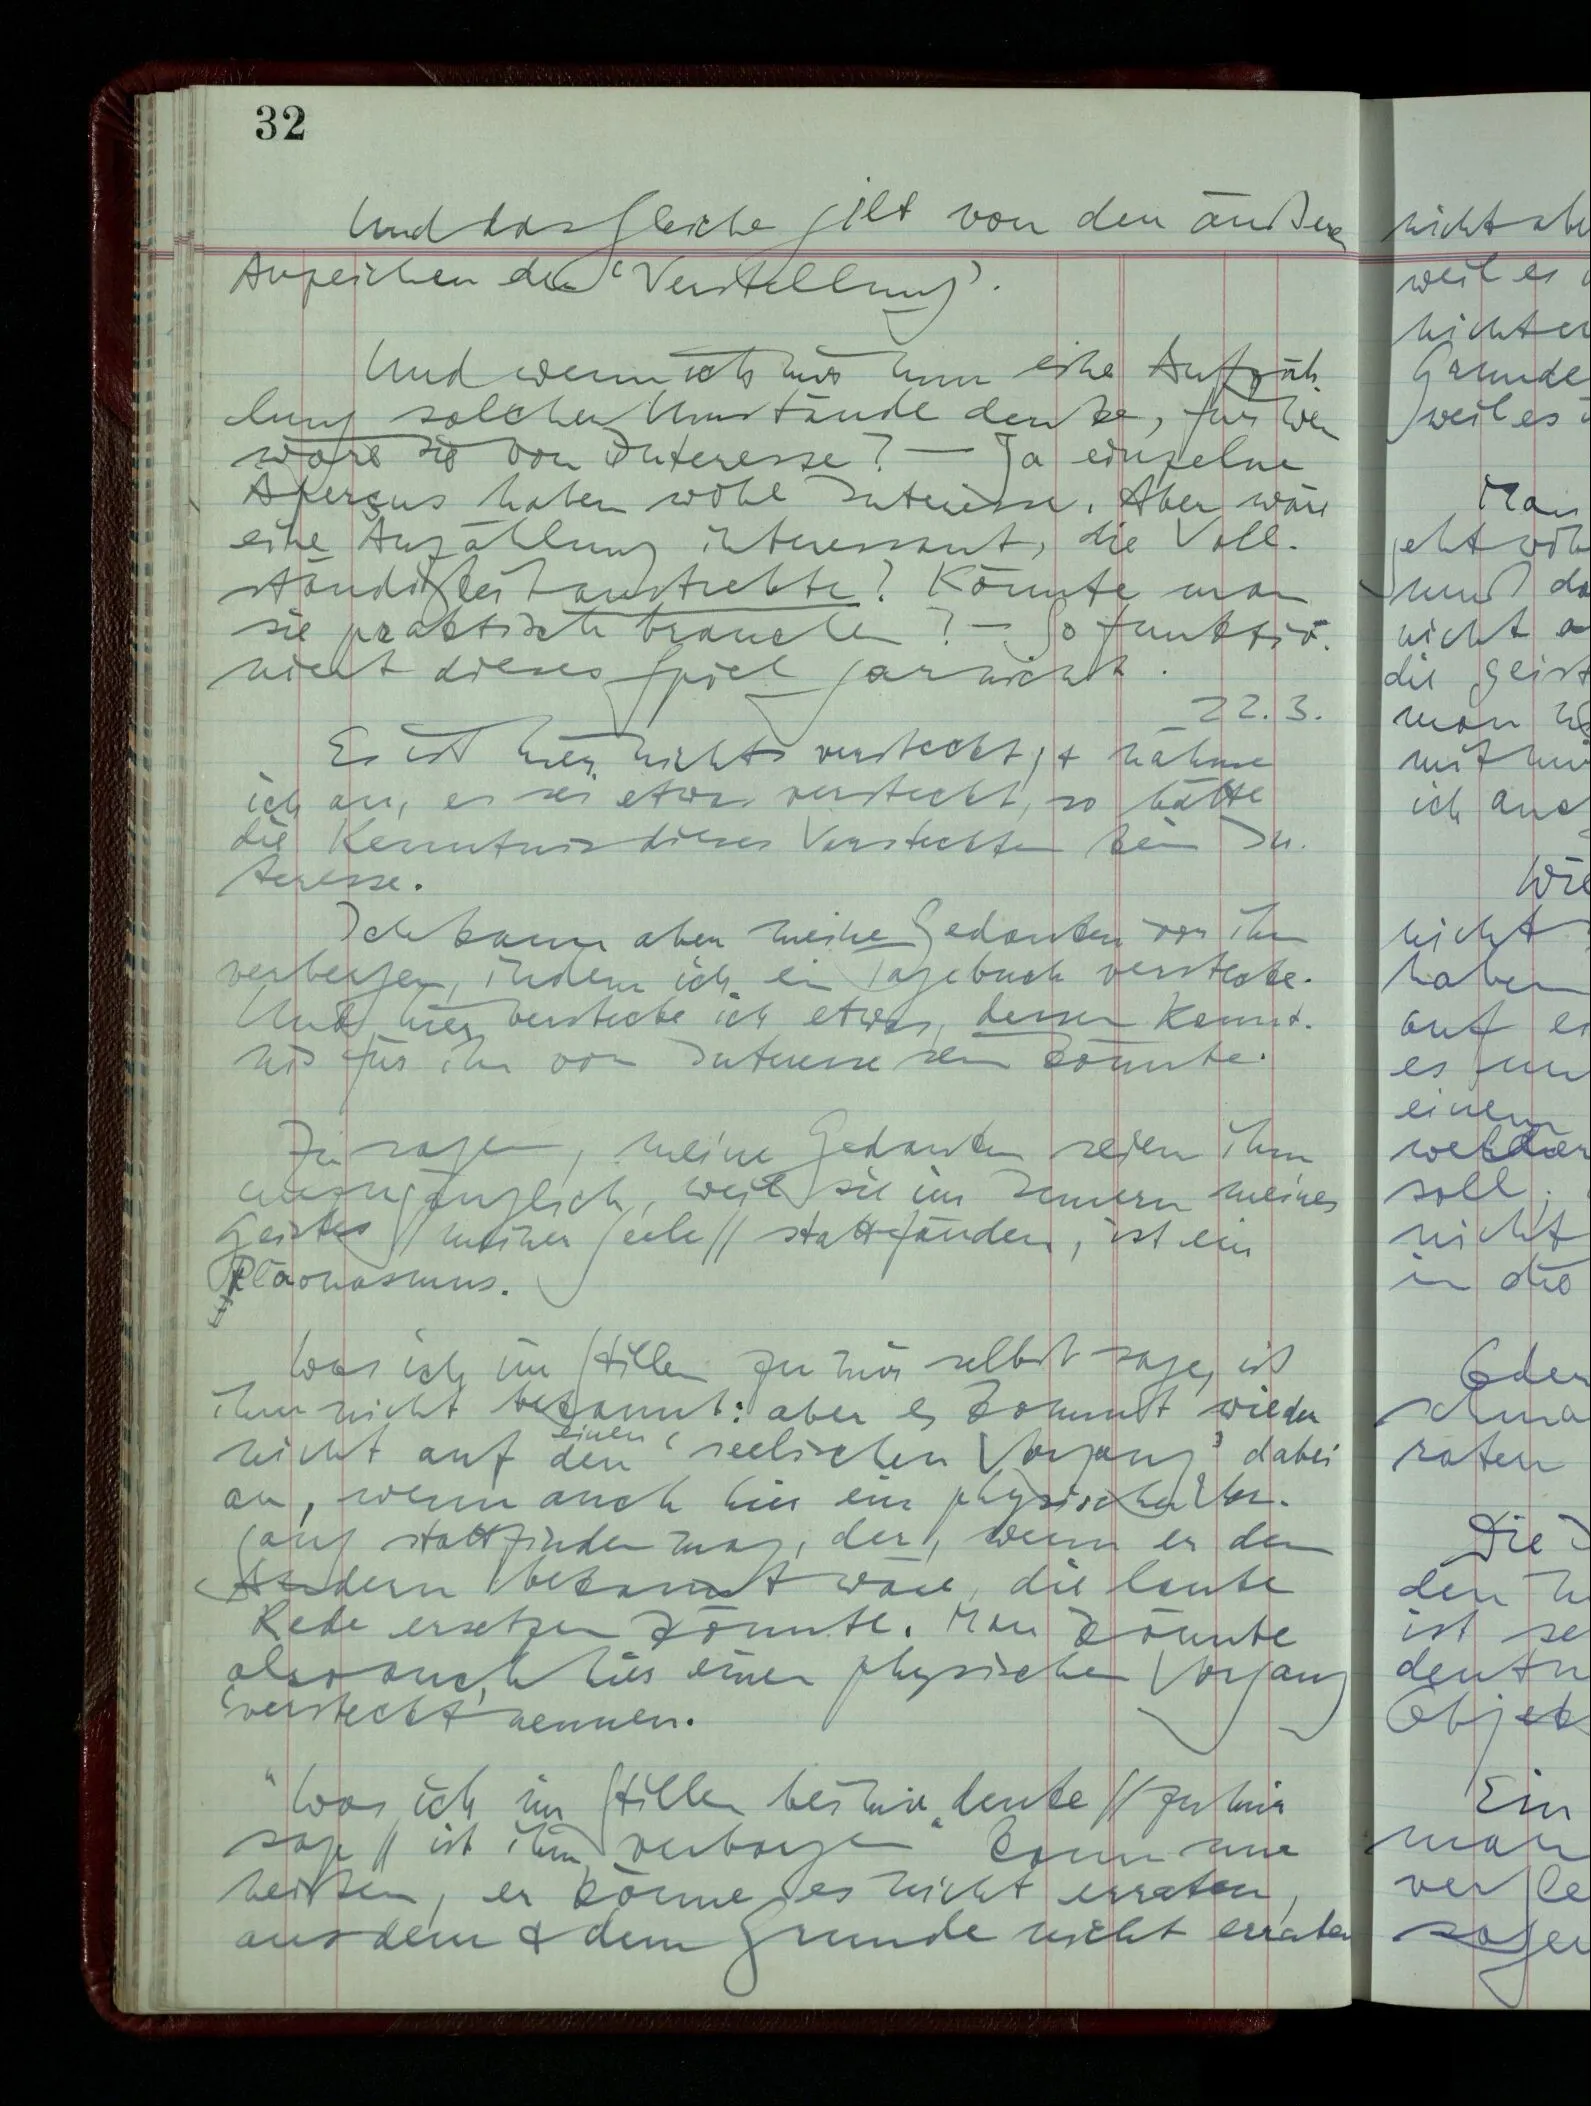 32
Und das Gleiche gilt von den äußern
Anzeichen der 'Verstellung'.
Und wenn ich mir nun eine Aufzäh-
lung solcher Umstände denke, für wen
wäre sie von Interesse? — Ja einzelne
Aperçus haben wohl Interesse. Aber wäre
eine Aufzählung interessant, die Voll-
ständigkeit anstrebte? Könnte man
sie praktisch brauchen? — So funktio-
niert dieses Spiel garnicht.
22.3.
Es ist hier nichts versteckt; & nähme
ich an, es sei etwas versteckt, so hätte
die Kenntnis dieses Versteckten kein In-
teresse.
Ich kann aber meine Gedanken vor ihm
verbergen, indem ich ein Tagebuch verstecke.
Und hier verstecke ich etwas, dessen Kennt-
nis für ihn von Interesse sein könnte.
Zu sagen, meine Gedanken seien ihm
unzugänglich, weil sie im Innern meines
Geistes // meiner Seele // stattfänden, ist ein
Pleonasmus.
Was ich im Stillen zu mir selbst sage, ist
ihm nicht bekannt: aber es kommt wieder
einen
nicht auf den 'seelischen Vorgang' dabei
an, wenn auch hier ein physischer Vor-
gang stattfinden mag, der, wenn er dem
Andern bekannt wäre, die laute
Rede ersetzen könnte. Man könnte
also auch hier einen physischen Vorgang
'versteckt' nennen.
"Was ich im Stillen bei mir denke // zu mir
sage // ist ihm verborgen" kann nur
heißen, er könne es nicht erraten,
aus dem & dem Grunde nicht erraten
nicht
weil es
Grunde
weil es
Man
nicht
die
man
ich
Wie
nicht
haben
auf
es
einem
soll,
nicht
in
Oder
raten
Die
den
ist
Objek
Ein
man